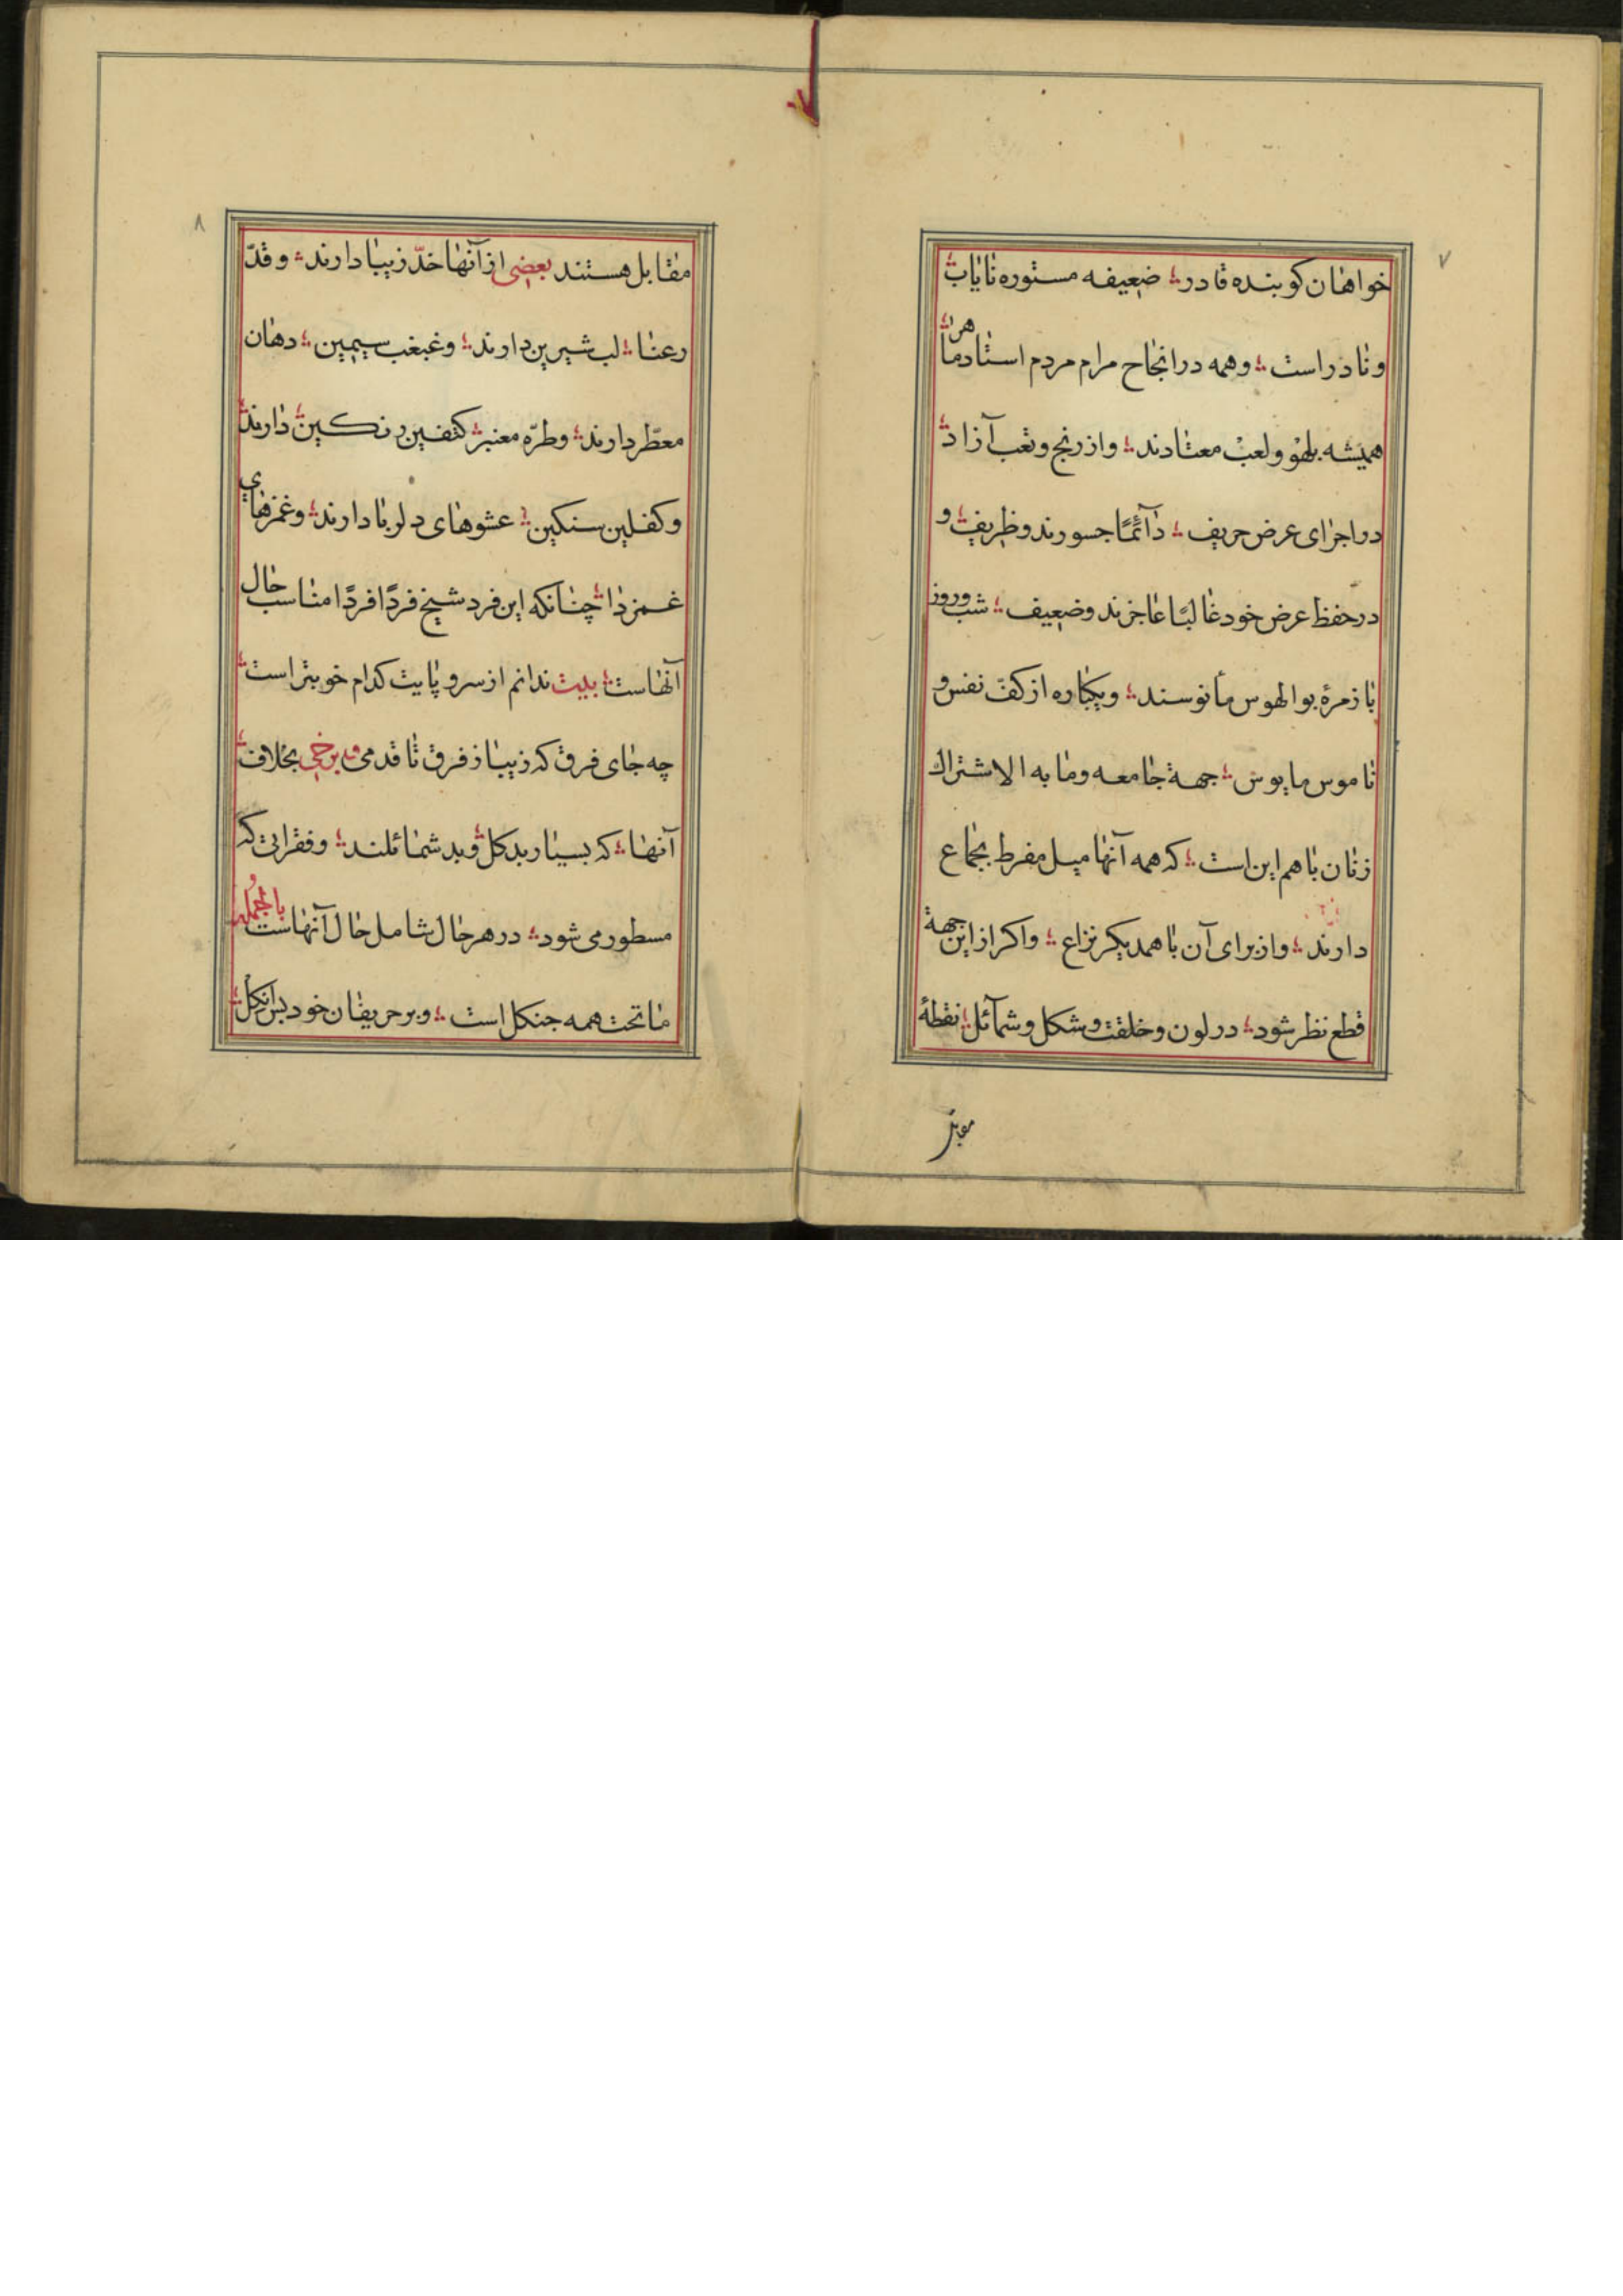 ۷
خواهان کوبنده قادر؛ ضعیفه مستوره نایاب
و نادر است؛ و همه در انجاح مرام مردم استاد ماهر؛
همیشه بلهو و لعب معتادند؛ و از رنج و تعب آزاد
در اجرای عرض حریف؛ دآئمًا جسورند و ظریف؛ و
در حفظ عرض خود غالبًا عاجزند و ضعیف؛ شب و روز
با زمرهٔ بوالهوس مأنوسند؛ و یکباره از کفّ نفس و
ناموس مایوس؛ جهة جامعه و ما به الاشتراك
زنان با هم این است؛ که همه آنها میل مفرط بجماع
دارند؛ و از برای آن با همدیکر نزاع؛ و اکر از این جهة
قطع نظر شود؛ در لون و خلقت و شکل و شمآئل؛ نقطهٔ
مقابل
۸
مقابل هستند بعضی از آنها خدّ زیبا دارند؛ و قدّ
رعنا؛ لب شیرین دارند؛ و غبغب سیمین؛ دهان
معطّر دارند؛ و طرّه معنبر؛ کتفین رنکین دارند
و کفلین سنکین؛ عشوهای دلربا دارند؛ و غمزهای
غمزدا؛ چنانکه این فرد شیخ فردًا فردًا مناسب حال
آنهاست؛ بیت ندانم از سر و پایت کدام خوبتر است
چه جای فرق که زیبا ز فرق تا قدمی و برخی بخلاف
آنها؛ که بسیار بدکل و بد شمائلند؛ و فقراتی که
مسطور می شود؛ در هر حال شامل حال آنهاست و بالجمله
ما تحت همه جنکل است؛ و بر حریفان خود بس انکل